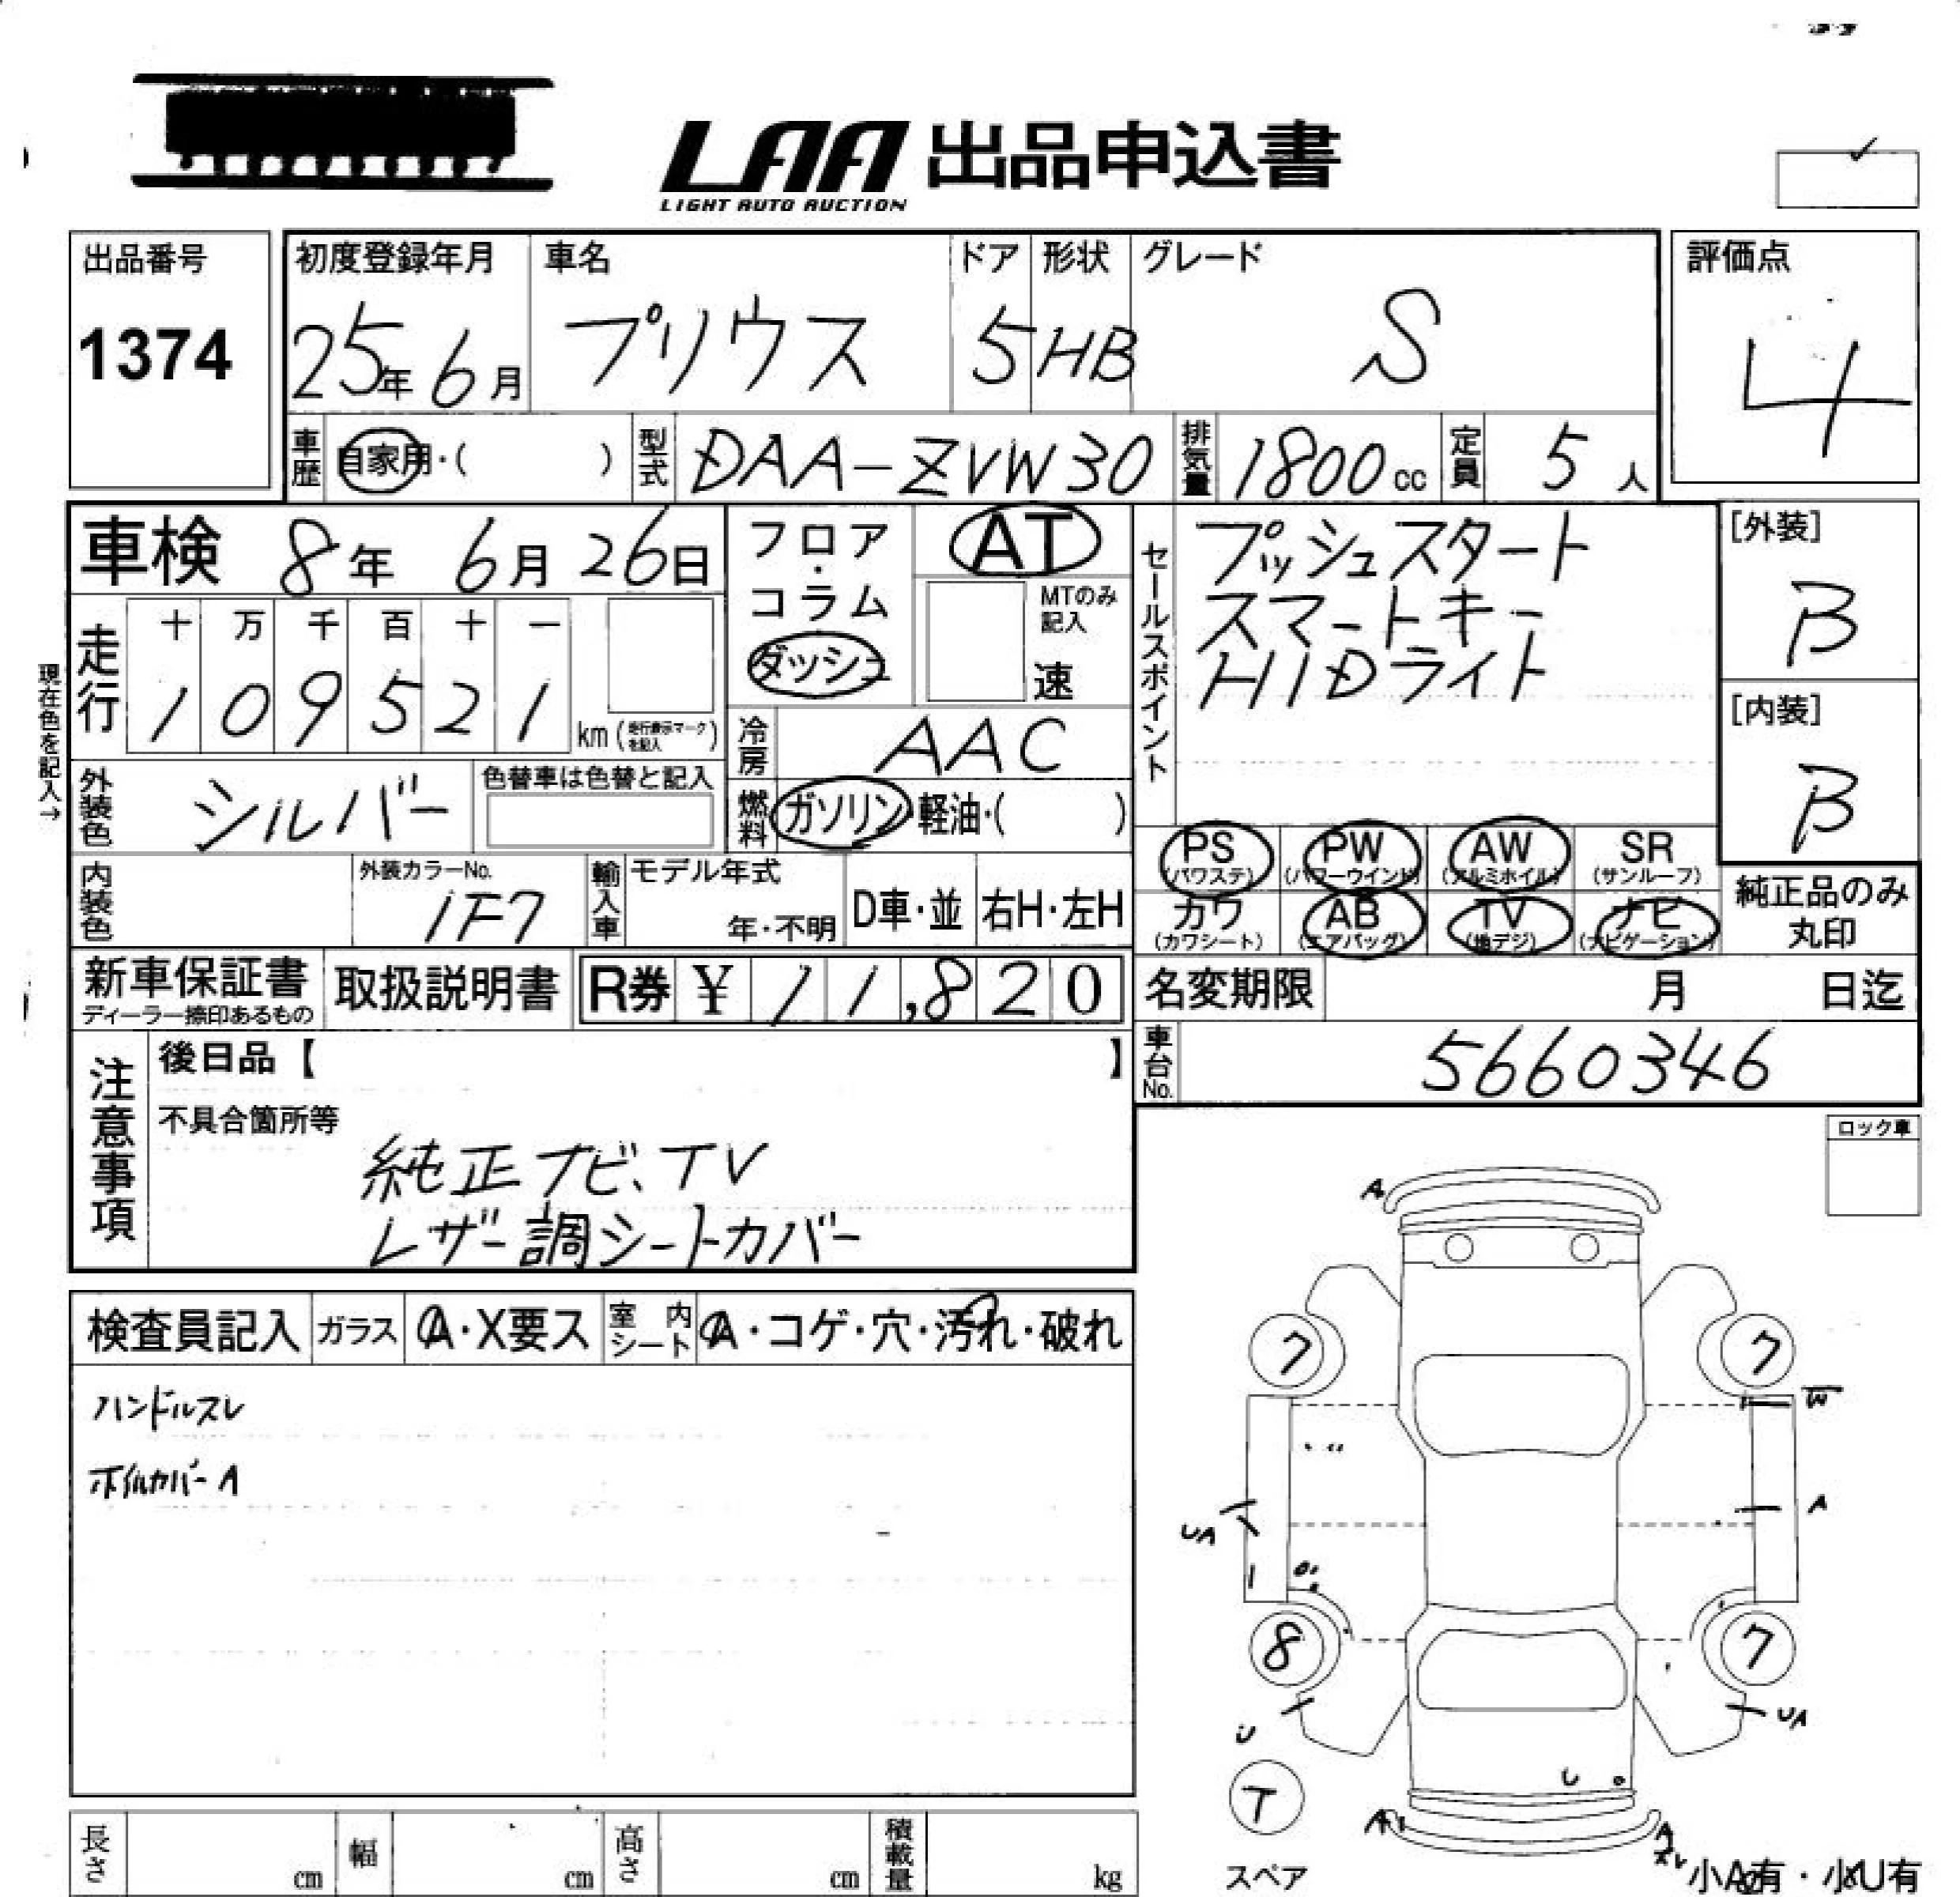 LAA 出品申込書
LIGHT AUTO AUCTION
出品番号
1374
初度登録年月 車名 ドア 形状 グレード
25年6月 プリウス 5 HB S
評価点
4
車歴 自家用・( ) 型式 DAA-ZVW30 排気量 1800cc 定員 5人
車検 8年 6月 26日
フロア・コラム
ダッシュ
AT
MTのみ記入
速
セールスポイント
プッシュスタート
スマートキー
HIDライト
[外装]
B
[内装]
B
現在色を記入→
走行 十 万 千 百 十 一
1 0 9 5 2 1 km (走行表示マークを記入)
冷房 AAC
外装色 シルバー 色替車は色替と記入
燃料 ガソリン・軽油・( )
内装色 外装カラーNo. 1F7
輸入車 モデル年式 年・不明 D車・並 右H・左H
PS (パワステ) PW (パワーウインド) AW (アルミホイル) SR (サンルーフ)
カワ (カワシート) AB (エアバッグ) TV (地デジ) ナビ (ナビゲーション)
純正品のみ丸印
新車保証書 取扱説明書 R券 ¥11,820
ディーラー捺印あるもの
名変期限 月 日迄
車台No. 5660346
注意事項
後日品【 】
不具合箇所等
純正ナビ、TV
レザー調シートカバー
ロック車
検査員記入 ガラス A・X要ス 室内シート A・コゲ・穴・汚れ・破れ
ハンドルスレ
ホイルカバーA
A
7 7
W
A
UA
8 7
U
UA
U
T
スペア
A
A
小A有・小U有
長さ cm 幅 cm 高さ cm 積載量 kg